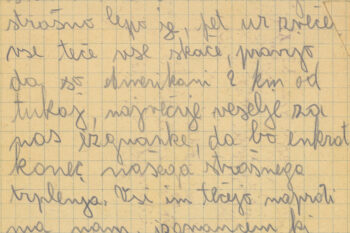 strašno lepo je, pet ur zvečer
vse teče vse skače, pravijo
da so Amerikani 2 km od
tukaj, največje veselje za
nas izgnanke, da bo enkrat
konec našega strašnega
trplenja. Vsi im tečejo naproti